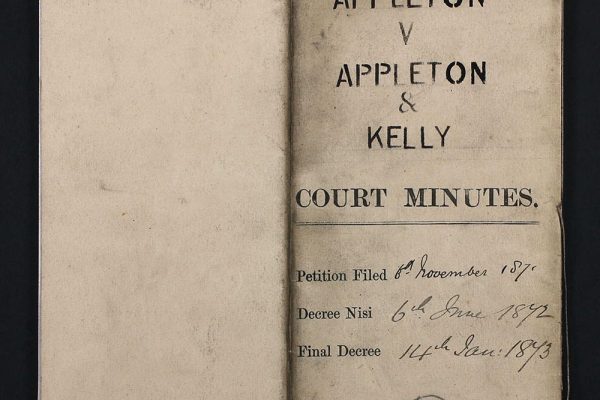 APPLETON
V
APPLETON
&
KELLY
COURT MINUTES.
Petition Filed 6th November 1871
Decree Nisi 6th June 1872
Final Decree 14th Jan: 1873